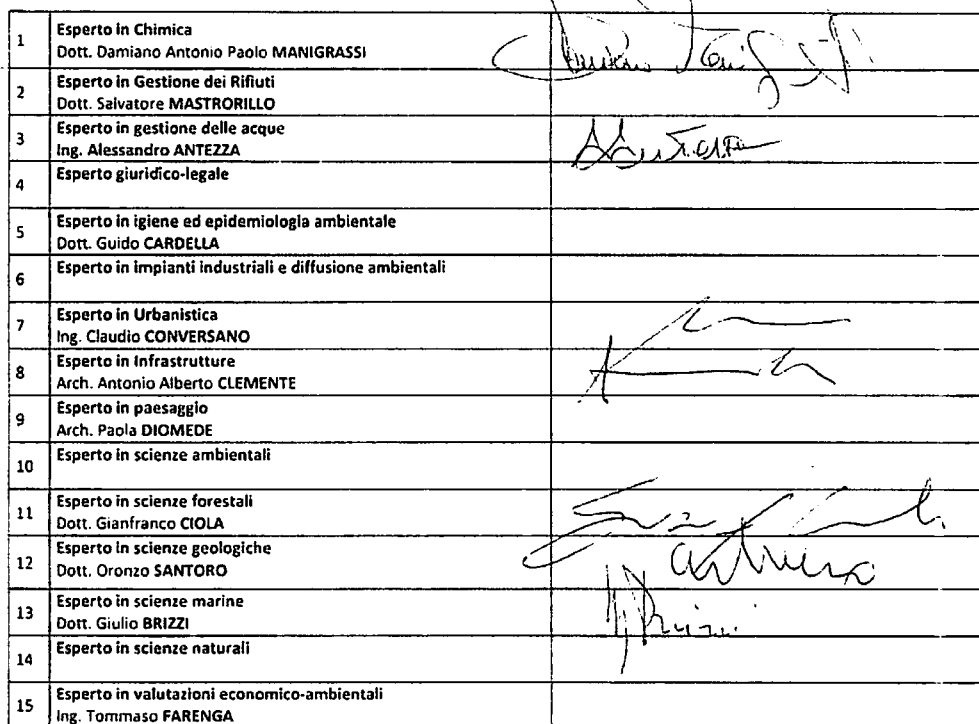 1
Esperto in Chimica
Dott. Damiano Antonio Paolo MANIGRASSI
2
Esperto in Gestione dei Rifiuti
Dott. Salvatore MASTRORILLO
3
Esperto in gestione delle acque
Ing. Alessandro ANTEZZA
4
Esperto giuridico-legale
5
Esperto in igiene ed epidemiologia ambientale
Dott. Guido CARDELLA
6
Esperto in impianti industriali e diffusione ambientali
7
Esperto in Urbanistica
Ing. Claudio CONVERSANO
8
Esperto in Infrastrutture
Arch. Antonio Alberto CLEMENTE
9
Esperto in paesaggio
Arch. Paola DIOMEDE
10
Esperto in scienze ambientali
11
Esperto in scienze forestali
Dott. Gianfranco CIOLA
12
Esperto in scienze geologiche
Dott. Oronzo SANTORO
13
Esperto in scienze marine
Dott. Giulio BRIZZI
14
Esperto in scienze naturali
15
Esperto in valutazioni economico-ambientali
Ing. Tommaso FARENGA